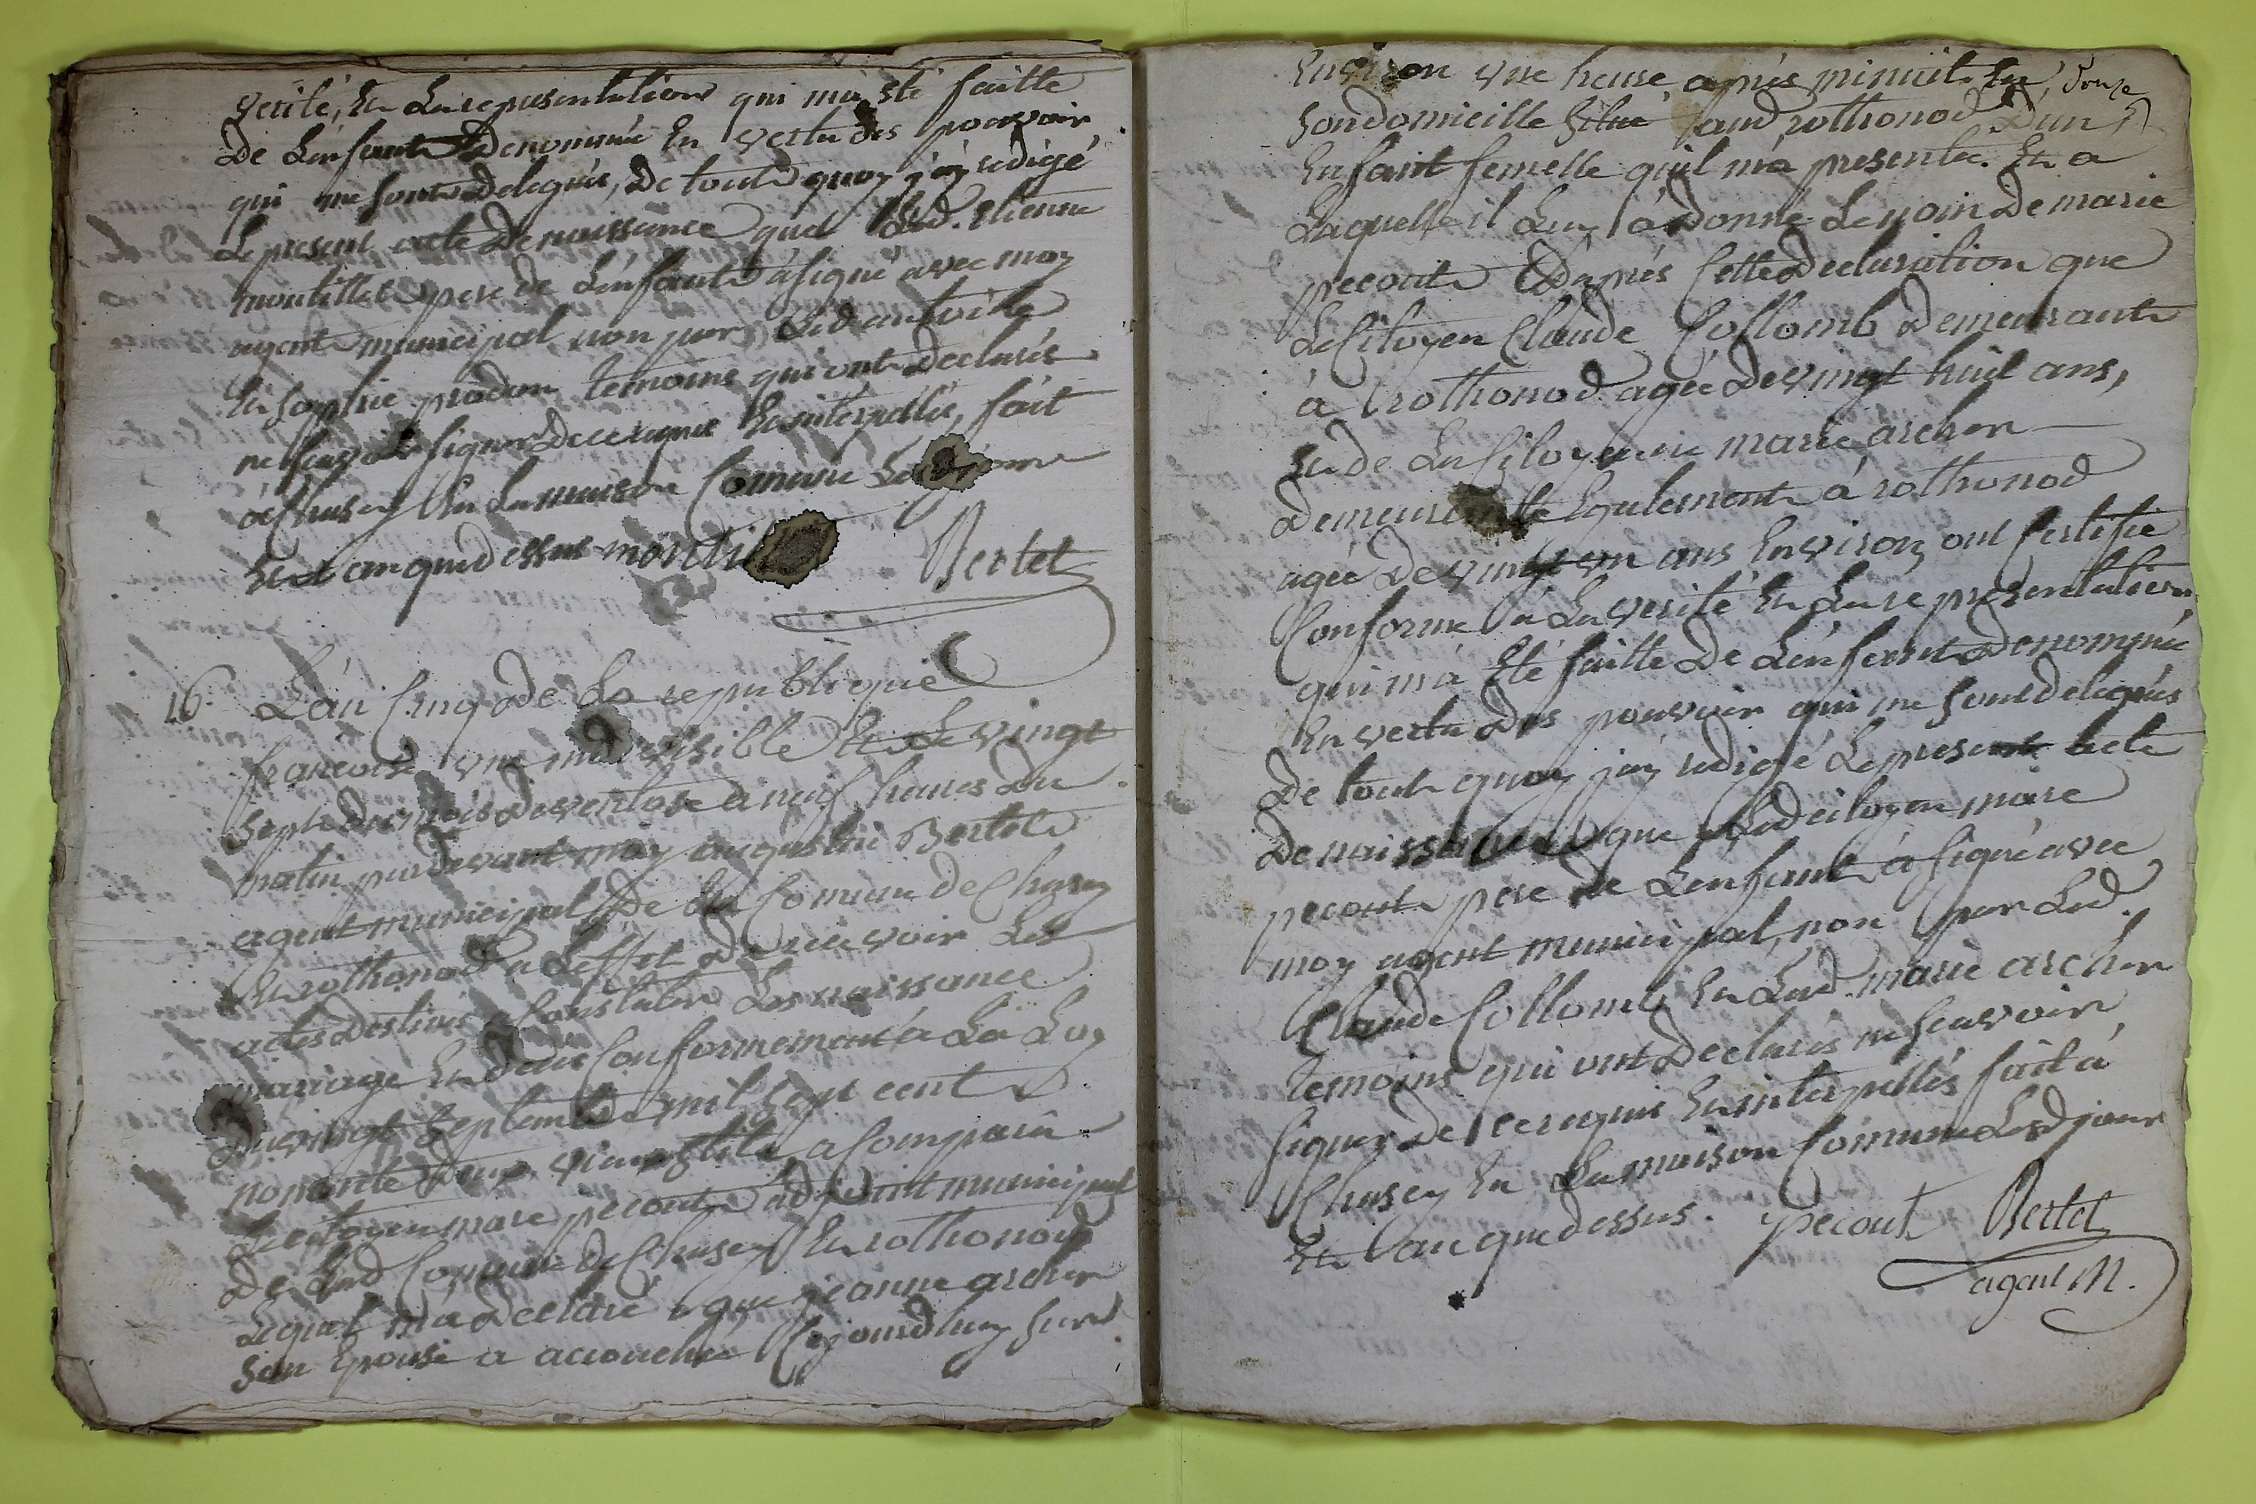 verité, et la representation qui m'a eté faitte
de l'enfant denommée en vertu des pouvoir
qui me sont delegués, de tout quoy j'ay redigé
le present acte de naissance que led. etienne
montillet pere de l'enfant à signé avec moy
agent municipal non par led antoine
et sophie pradon temoins qui ont declarés
ne scavoir signer de ce requis et interpellés, fait
à Chasey en la maison Comune led jour
et an que dessus montil Bertet
16. L'an Cinq de la republique
francoise une indivisible et le vingt
sept du mois de ventose à neuf heures du
matin pardevant moy augustin Bertet
agent municipal de la Comune de Chasey
et rothonod a l'effet de recevoir les
actes destinés a Constater les naissance
mariage et deces Conformement à la loy
du vingt septembre mil sept cent
nonante deux vieux stile, a Comparû
le citoyen marc pecout adjoint municipal
de lad Comune de Chasey et rothonod
lequel m'a declaré que jeanne archer
son epouse a accouchée cejourdhuy sur
environ une heure après minuit en, dans
son domicille situé aud rothonod d'un
enfant femelle qu'il m'a presentée. Et a
laquelle il luy à donné le nom de marie
pecout d'après cette declaration que
le Citoyen Claude Collomb demeurant
à rothonod agée de vingt huit ans,
et de la Citoyenne marie archer
demeurante egalement à rothonod
agée de vingt un ans environ, ont Certifié
Conforme à la verité et la representation
qui m'a eté faitte de l'enfant denommée
en vertu des pouvoir qui me sont delegués
de tout quoy j'ay redigé le present acte
de naissance que led citoyen marc
pecout pere de l'enfant à signé avec
moy agent municipal, non par led.
Claude Collomb et lad. marie archer
temoins qui ont declarés ne scavoir
signer de ce requis et interpellés fait à
Chasey en la maison Comune led jour
et an que dessus. pecout Bertet
agent M.